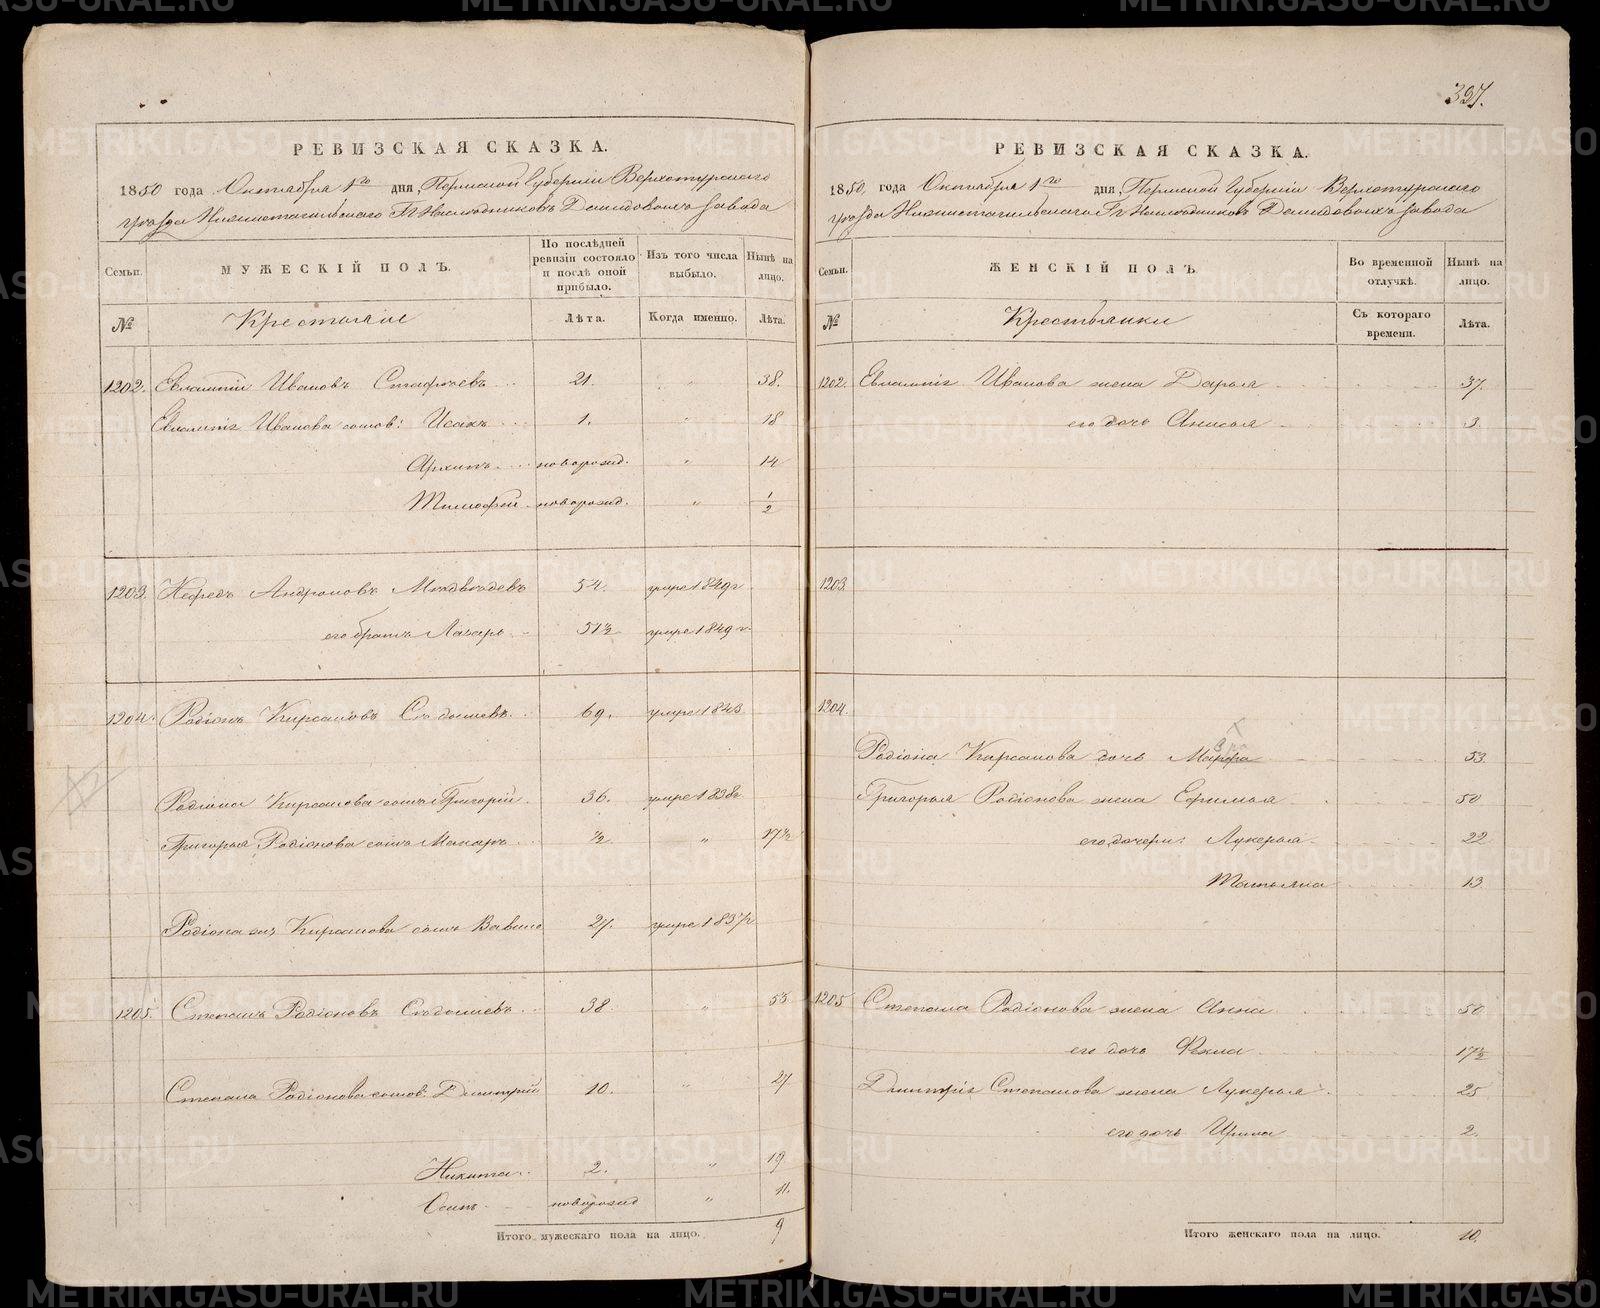 327.
РЕВИЗСКАЯ СКАЗКА.
1850 года Октября 1го дня, Пермской Губернии Верхотурского
уезда Нижнетагильского Гг Наследников Демидовых завода
Семьи. МУЖЕСКІЙ ПОЛЪ. По послѣдней ревизіи состояло и послѣ оной прибыло. Изъ того числа выбыло. Нынѣ на лицо.
№ Крестьяне Лѣта. Когда именно. Лѣта.
1202. Евлампий Ивановъ 21. " 38.
Евлампія Иванова сынов: Исакъ 1. " 18
Архипъ новорожд. " 14
Тимофей новорожд. " 1/2
1203. Нефедъ Андроновъ Медвѣдевъ 54. умре 1849 г
его братъ Лазарь 51 1/2 умре 1849 г.
1204. Родіонъ Кирсановъ Седышевъ 69. умре 1843
Родіона Кирсанова сынъ Григорій 36. умре 1838 г
Григорья Родіонова сынъ Макаръ 1/2 " 17 1/2
Родіона Кирсанова сынъ Вавило 27. умре 1837 г
1205. Степанъ Родіоновъ Седышевъ 38. " 53
Степана Родіонова сынов: Дмитрій 10. " 27
Никита 2. " 19
Осипъ новорожд " 11.
Итого мужескаго пола на лицо. 9
РЕВИЗСКАЯ СКАЗКА.
1850, года Октября 1го дня, Пермской Губернии Верхотурского
уезда Нижнетагильского Гг Наследников Демидовых завода
Семьи. ЖЕНСКІЙ ПОЛЪ Во временной отлучкѣ. Нынѣ на лицо.
№ Крестьянки Съ котораго времени. Лѣта.
1202. Евлампія Иванова жена Дарья 37.
его дочь Анисья 3
1203.
1204.
Родіона Кирсанова дочь 53
Григорья Родіонова жена Ефимья 50
его дочери: Лукерья 22
Татьяна 13
1205 Степана Родіонова жена Анна 50
его дочь Фекла 17 1/2
Дмитрія Степанова жена Лукерья 25
его дочь Ирина 2.
Итого женскаго пола на лицо. 10.
METRIKI.GASO-URAL.RU